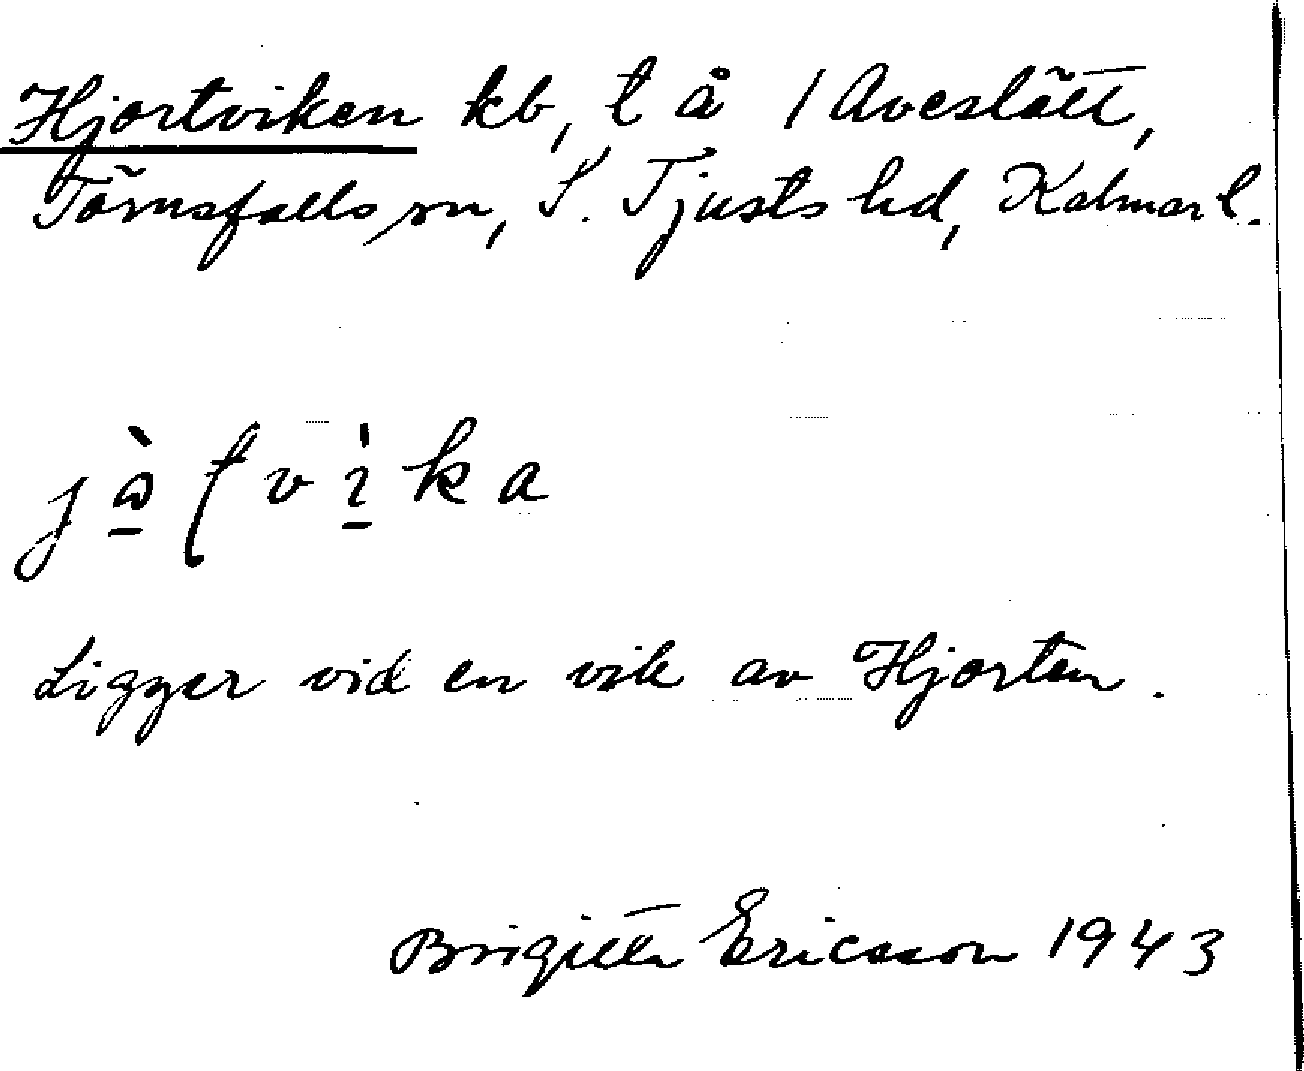 Hjortviken kb, t å 1 Aveslätt,
Törnsfalls sn, S. Tjusts hd, Kalmar l.
Ligger vid en vik av Hjorten.
Birgitta Ericsson 1943